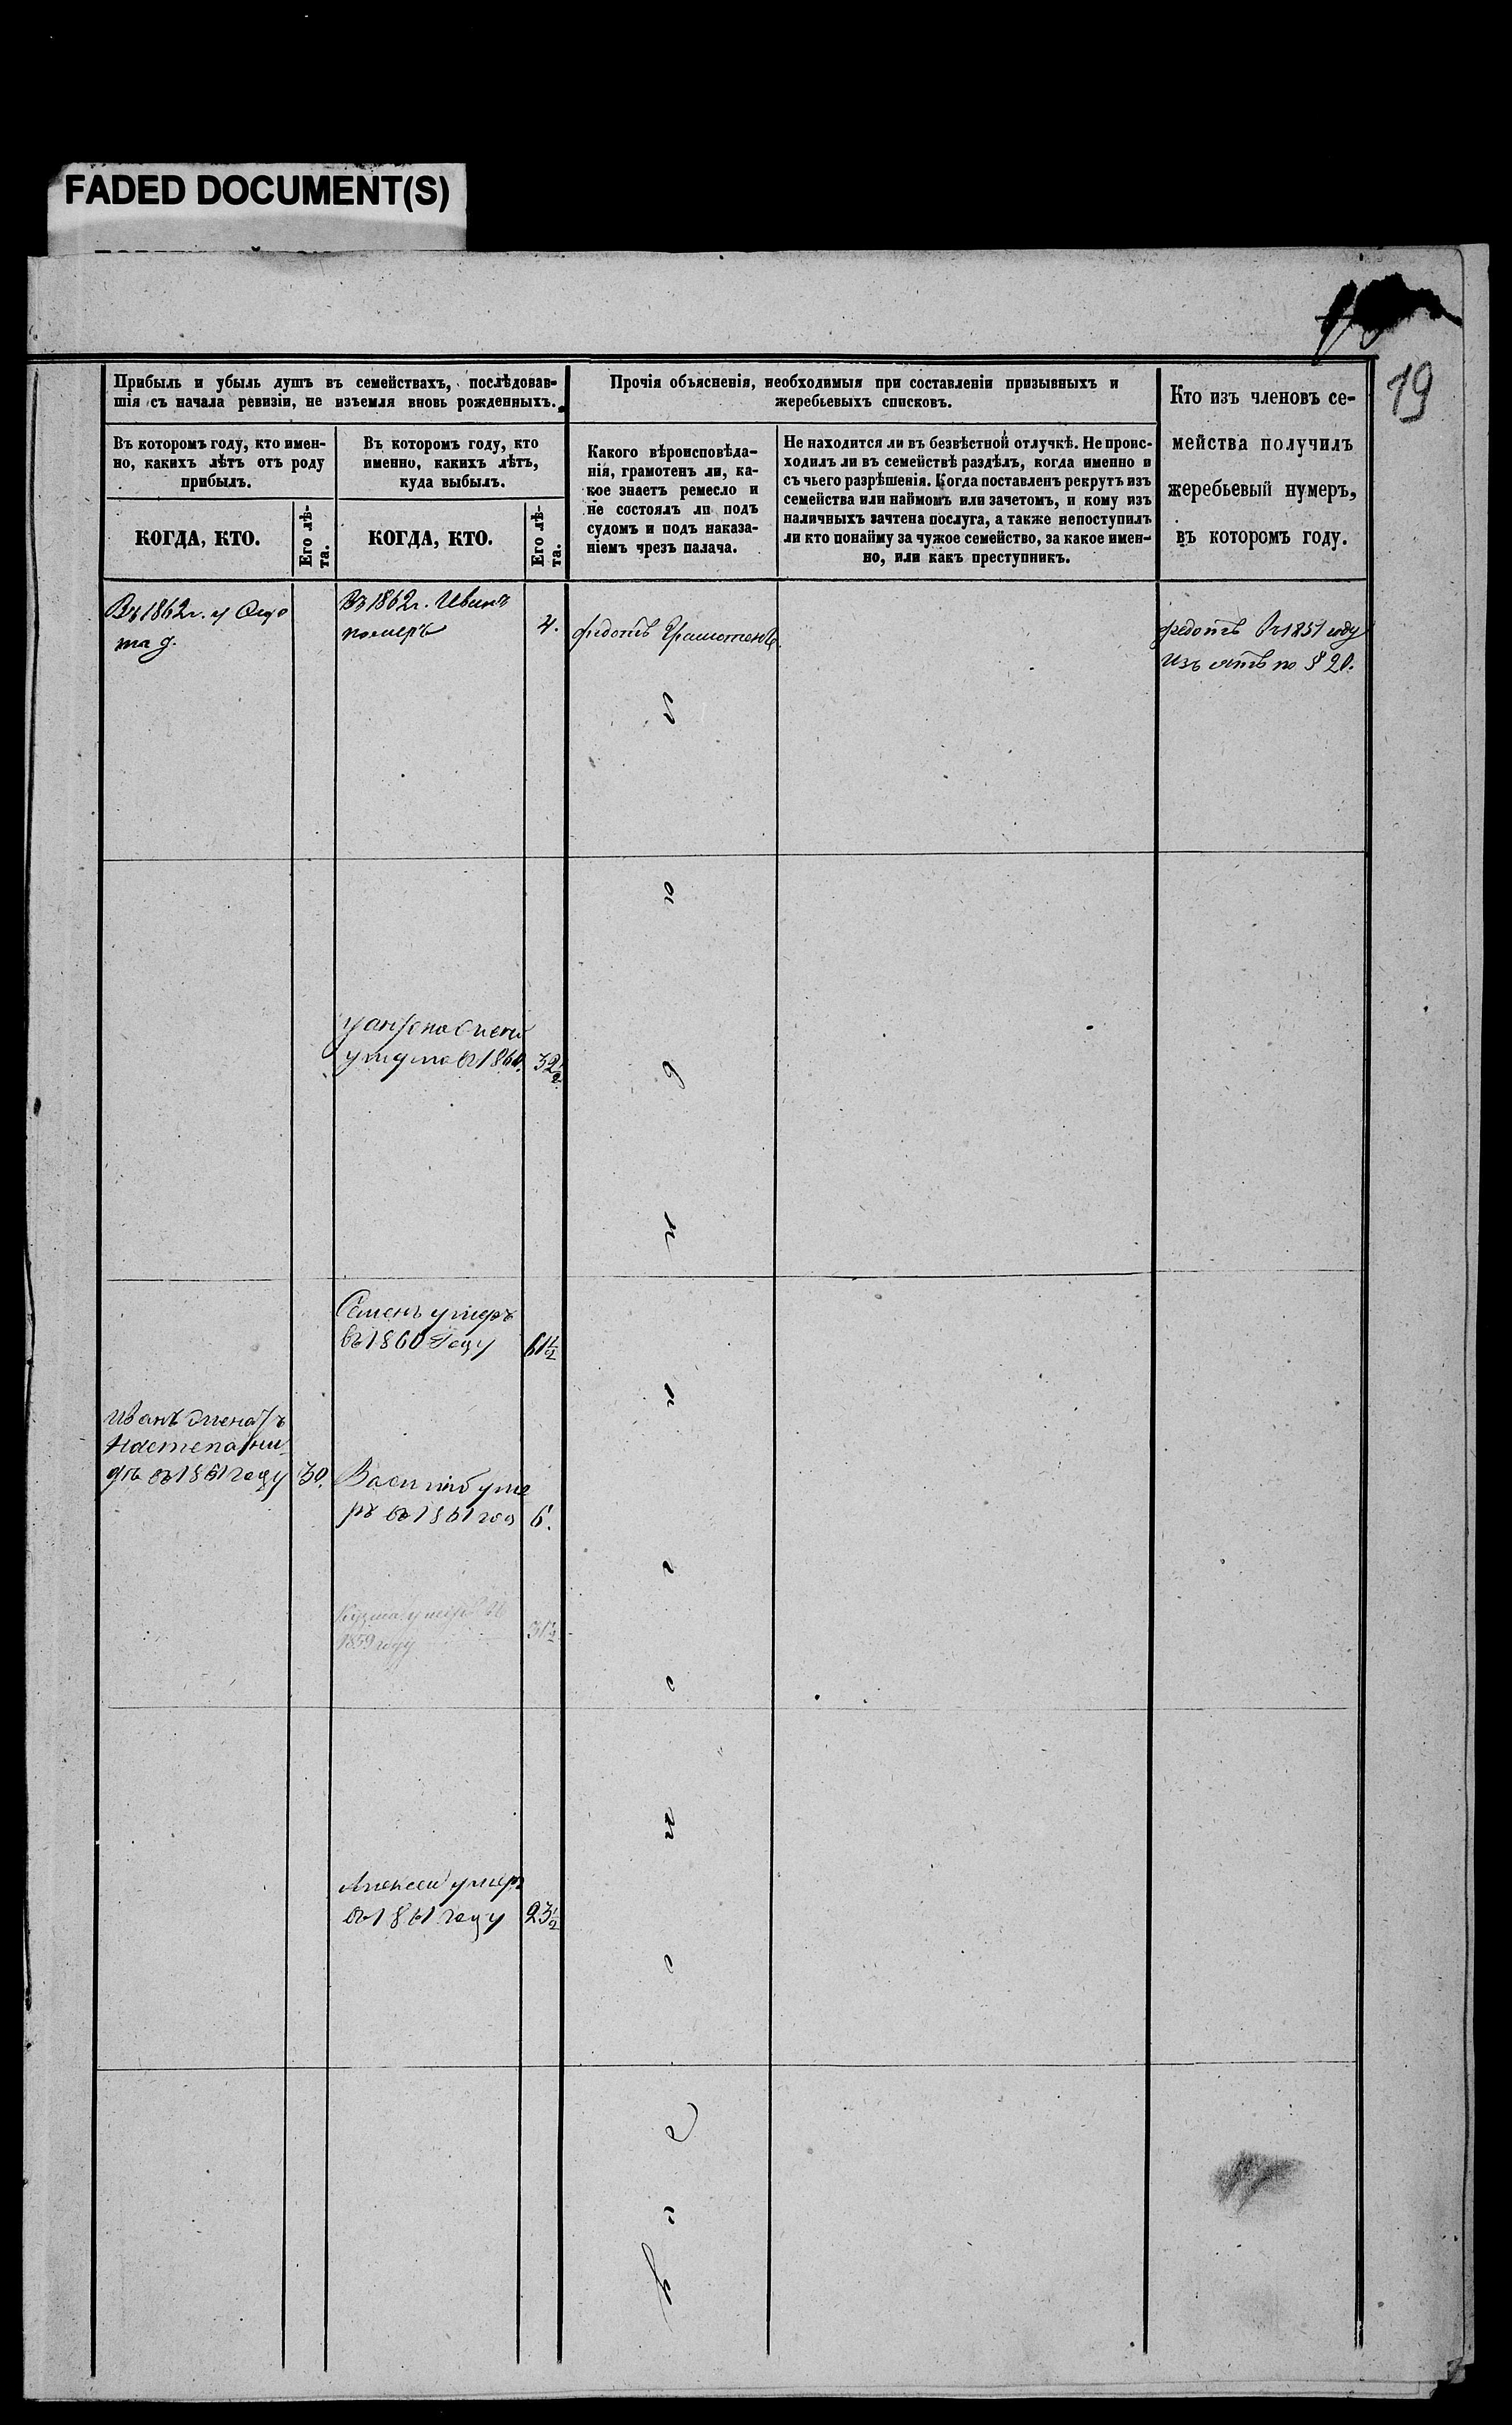 FADED DOCUMENT(S)
19
Прибыль и убыль душъ въ семействахъ, послѣдовав-
шія съ начала ревизіи, не изъемля вновь рожденныхъ.
Прочія объясненія, необходимыя при составленіи призывныхъ и
жеребьевыхъ списковъ.
Кто изъ членовъ се-
мейства получилъ
жеребьевый нумеръ,
въ которомъ году.
Въ которомъ году, кто имен-
но, какихъ лѣтъ отъ роду
прибылъ.
Въ которомъ году, кто
именно, какихъ лѣтъ,
куда выбылъ.
Какого вѣроисповѣда-
нія, грамотенъ ли, ка-
кое знаетъ ремесло и
не состоялъ ли подъ
судомъ и подъ наказа-
ніемъ чрезъ палача.
Не находится ли въ безвѣстной отлучкѣ. Не проис-
ходилъ ли въ семействѣ раздѣлъ, когда именно и
съ чьего разрѣшенія. Когда поставленъ рекрутъ изъ
семейства или наймомъ или зачетомъ, и кому изъ
наличныхъ зачтена послуга, а также непоступилъ
ли кто понайму за чужое семейство, за какое имен-
но, или какъ преступникъ.
КОГДА, КТО.
Его лѣ-
та.
КОГДА, КТО.
Его лѣ-
та.
Въ 1862 г. у
Въ 1862 г. Иванъ
померъ
4.
Федотъ Грамотенъ
Федотъ въ 1851 году
изъятъ по § 20.
въ 1860.
32 1/2
Семенъ умеръ
въ 1860 году
61 1/2
Иванъ
въ 1861 году
30.
Василій уме
ръ въ 1861 год
6.
Кузма умеръ въ
1859 году
31 1/2
Алексей умеръ
въ 1861 году
23 1/2